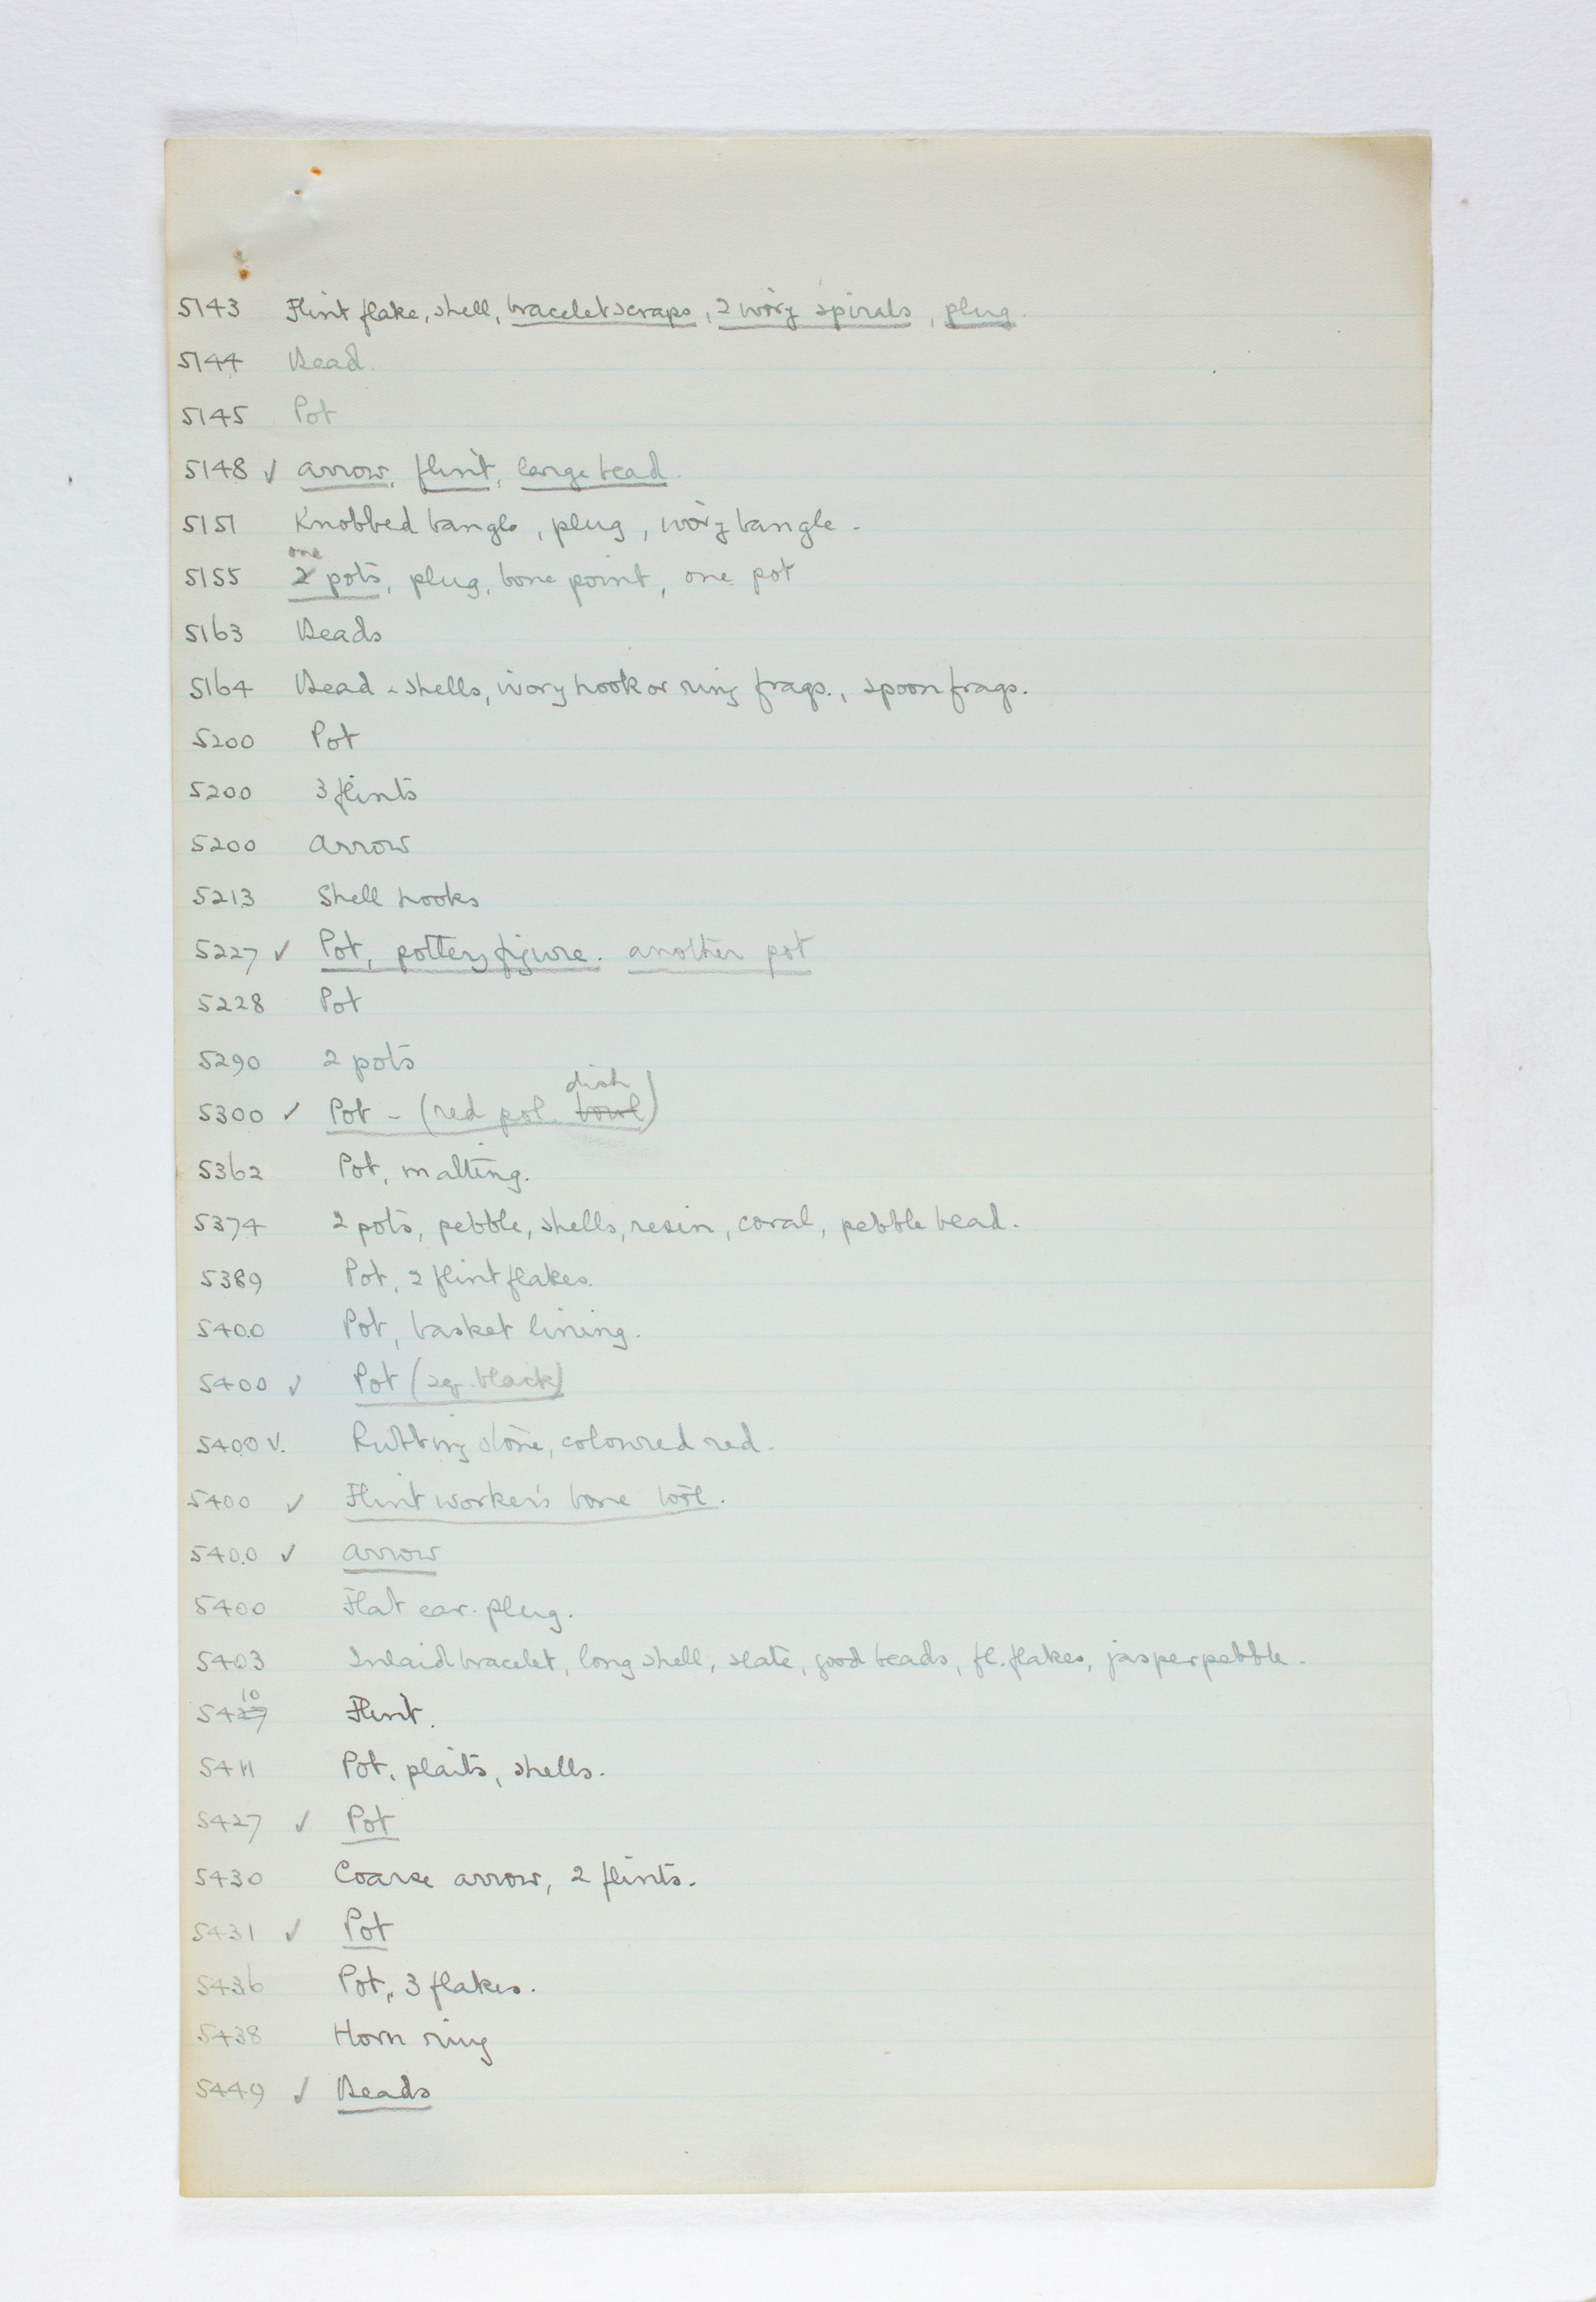 5143 Flint flake, shell, bracelet scraps, 2 ivory spirals, plug.
5144 Bead.
5145 Pot
5148 ✓ Arrow, flint, large bead.
5151 Knobbed bangle, plug, ivory bangle.
one
5155 2 pots, plug, bone point, one pot
5163 Beads
5164 Bead & shells, ivory hook or ring frags., spoon frags.
5200 Pot
5200 3 flints
5200 Arrow
5213 Shell hooks
5227 ✓ Pot, pottery figure. another pot
5228 Pot
5290 2 pots
dish
5300 ✓ Pot - (red pol. bowl)
5362 Pot, matting.
5374 2 pots, pebble, shells, resin, coral, pebble bead.
5389 Pot, 2 flint flakes.
5400 Pot, basket lining.
5400 ✓ Pot (sq. black)
5400 V. Rubbing stone, coloured red.
5400 ✓ Flint worker's bone tool.
5400 ✓ Arrow
5400 Flat ear-plug.
5403 Inlaid bracelet, long shell, slate, good beads, fl. flakes, jasper pebble.
10
5427 Flint.
5411 Pot, plaits, shells.
5427 ✓ Pot
5430 Coarse arrow, 2 flints.
5431 ✓ Pot
5436 Pot, 3 flakes.
5438 Horn ring
5449 ✓ Beads